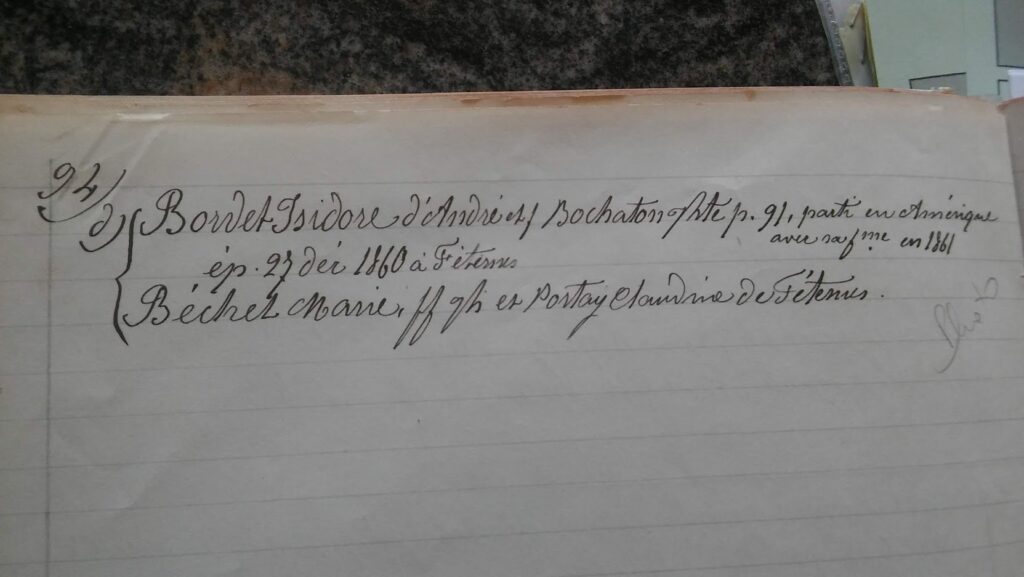 94)
d) Bordet Isidore d'André et f Bochaton Jhte p. 91, parti en Amérique
avec sa fme en 1861
ép. 27 déc 1860 à Féternes
Béchet Marie, ff Jh et Portay Claudine de Féternes.